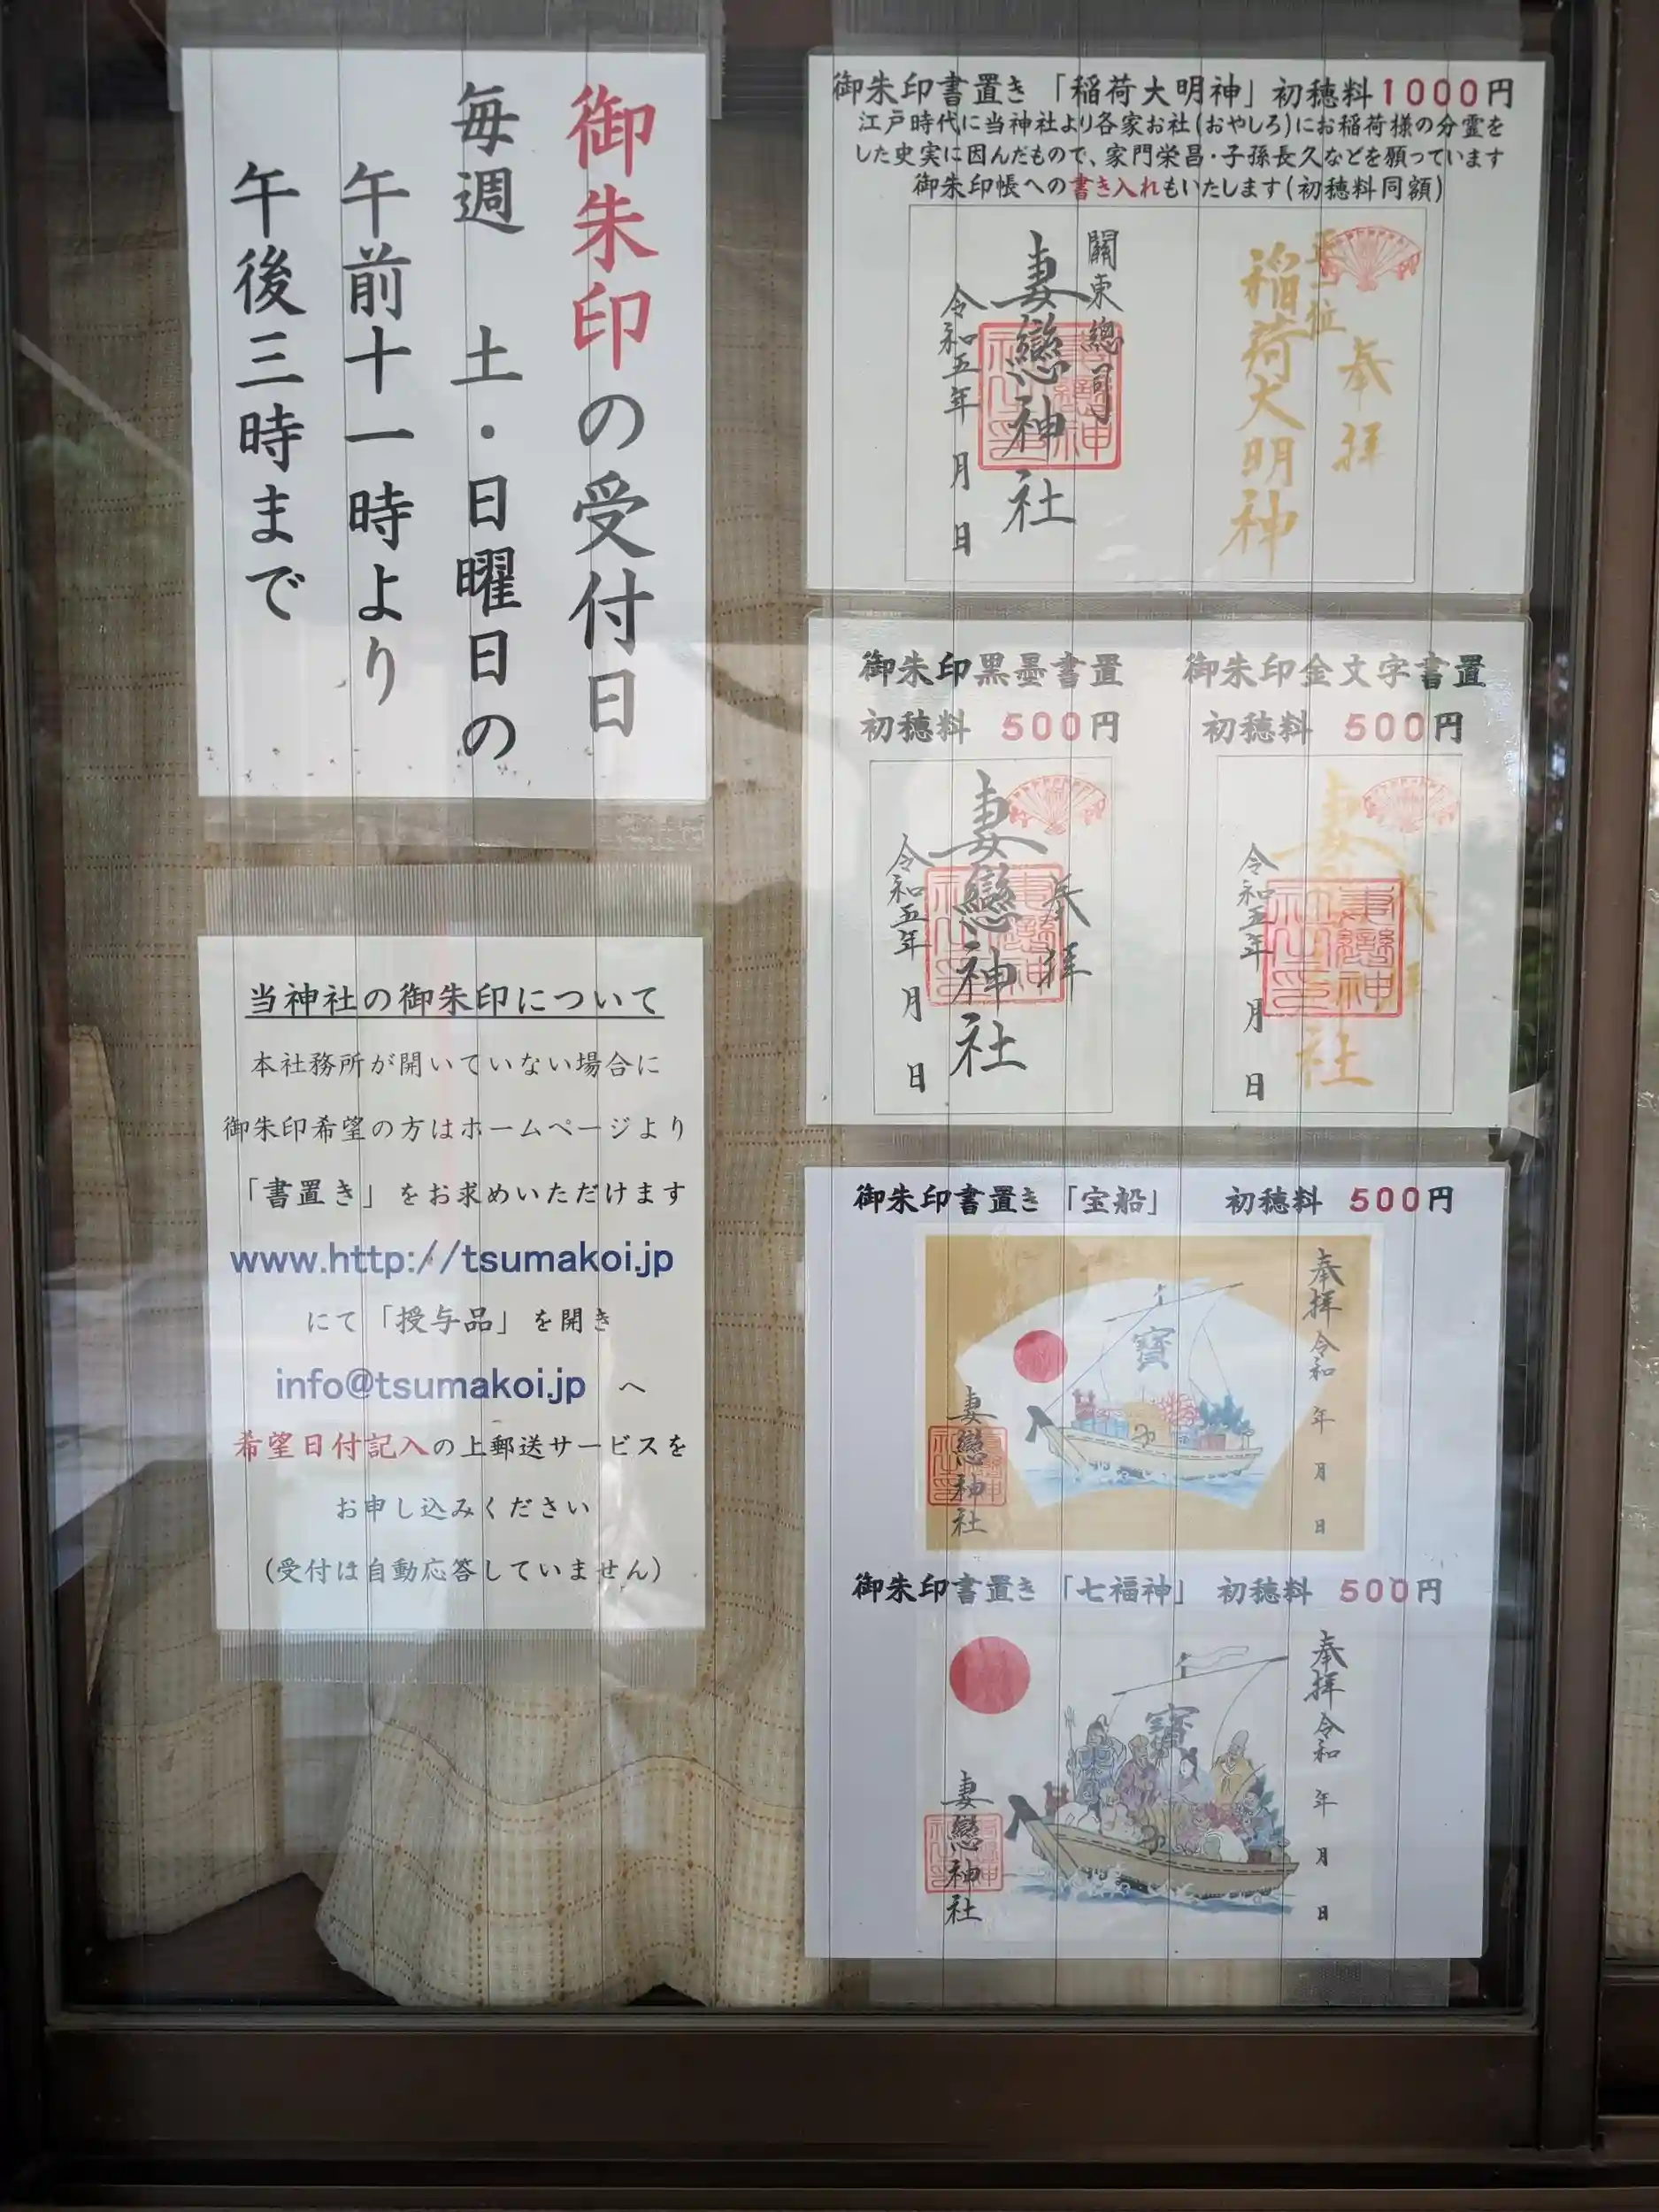 御朱印の受付日
毎週 土・日曜日の
午前十一時より
午後三時まで
当神社の御朱印について
本社務所が開いていない場合に
御朱印希望の方はホームページより
「書置き」をお求めいただけます
www.http://tsumakoi.jp
にて「授与品」を開き
info@tsumakoi.jp へ
希望日付記入の上郵送サービスを
お申し込みください
(受付は自動応答していません)
御朱印書置き「稲荷大明神」初穂料1000円
江戸時代に当神社より各家お社(おやしろ)にお稲荷様の分霊を
した史実に因んだもので、家門栄昌・子孫長久などを願っています
御朱印帳への書き入れもいたします(初穂料同額)
奉拝
正一位
稲荷大明神
關東總司
妻戀神社
令和五年 月 日
御朱印黒墨書置
初穂料 500円
奉拝
妻戀神社
令和五年 月 日
御朱印金文字書置
初穂料 500円
妻
社
令和五年 月 日
御朱印書置き「宝船」 初穂料 500円
奉拝 令和 年 月 日
寳
妻戀神社
御朱印書置き「七福神」 初穂料 500円
奉拝 令和 年 月 日
寳
妻戀神社